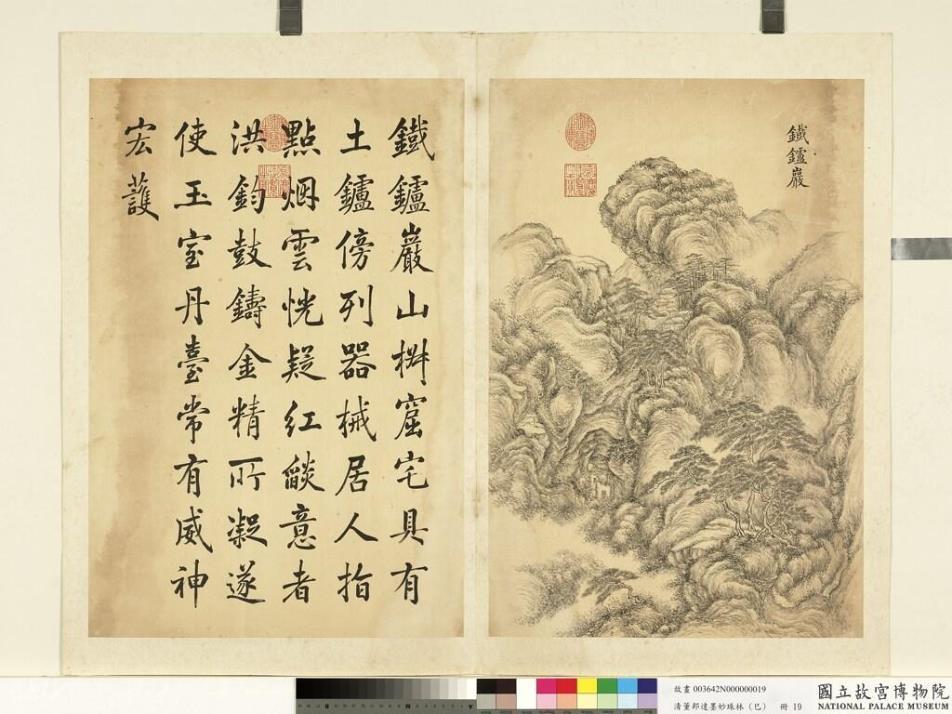 鐵鑪巖
鐵鑪巖山樹窟宅具有
土鑪傍列器械居人指
點烟雲恍疑紅燄意者
洪鈞鼓鑄金精所凝遂
使玉室丹臺常有威神
宏護
故畫 003642N000000019
清董邦達墨妙珠林（巳） 冊 19
國立故宮博物院
NATIONAL PALACE MUSEUM